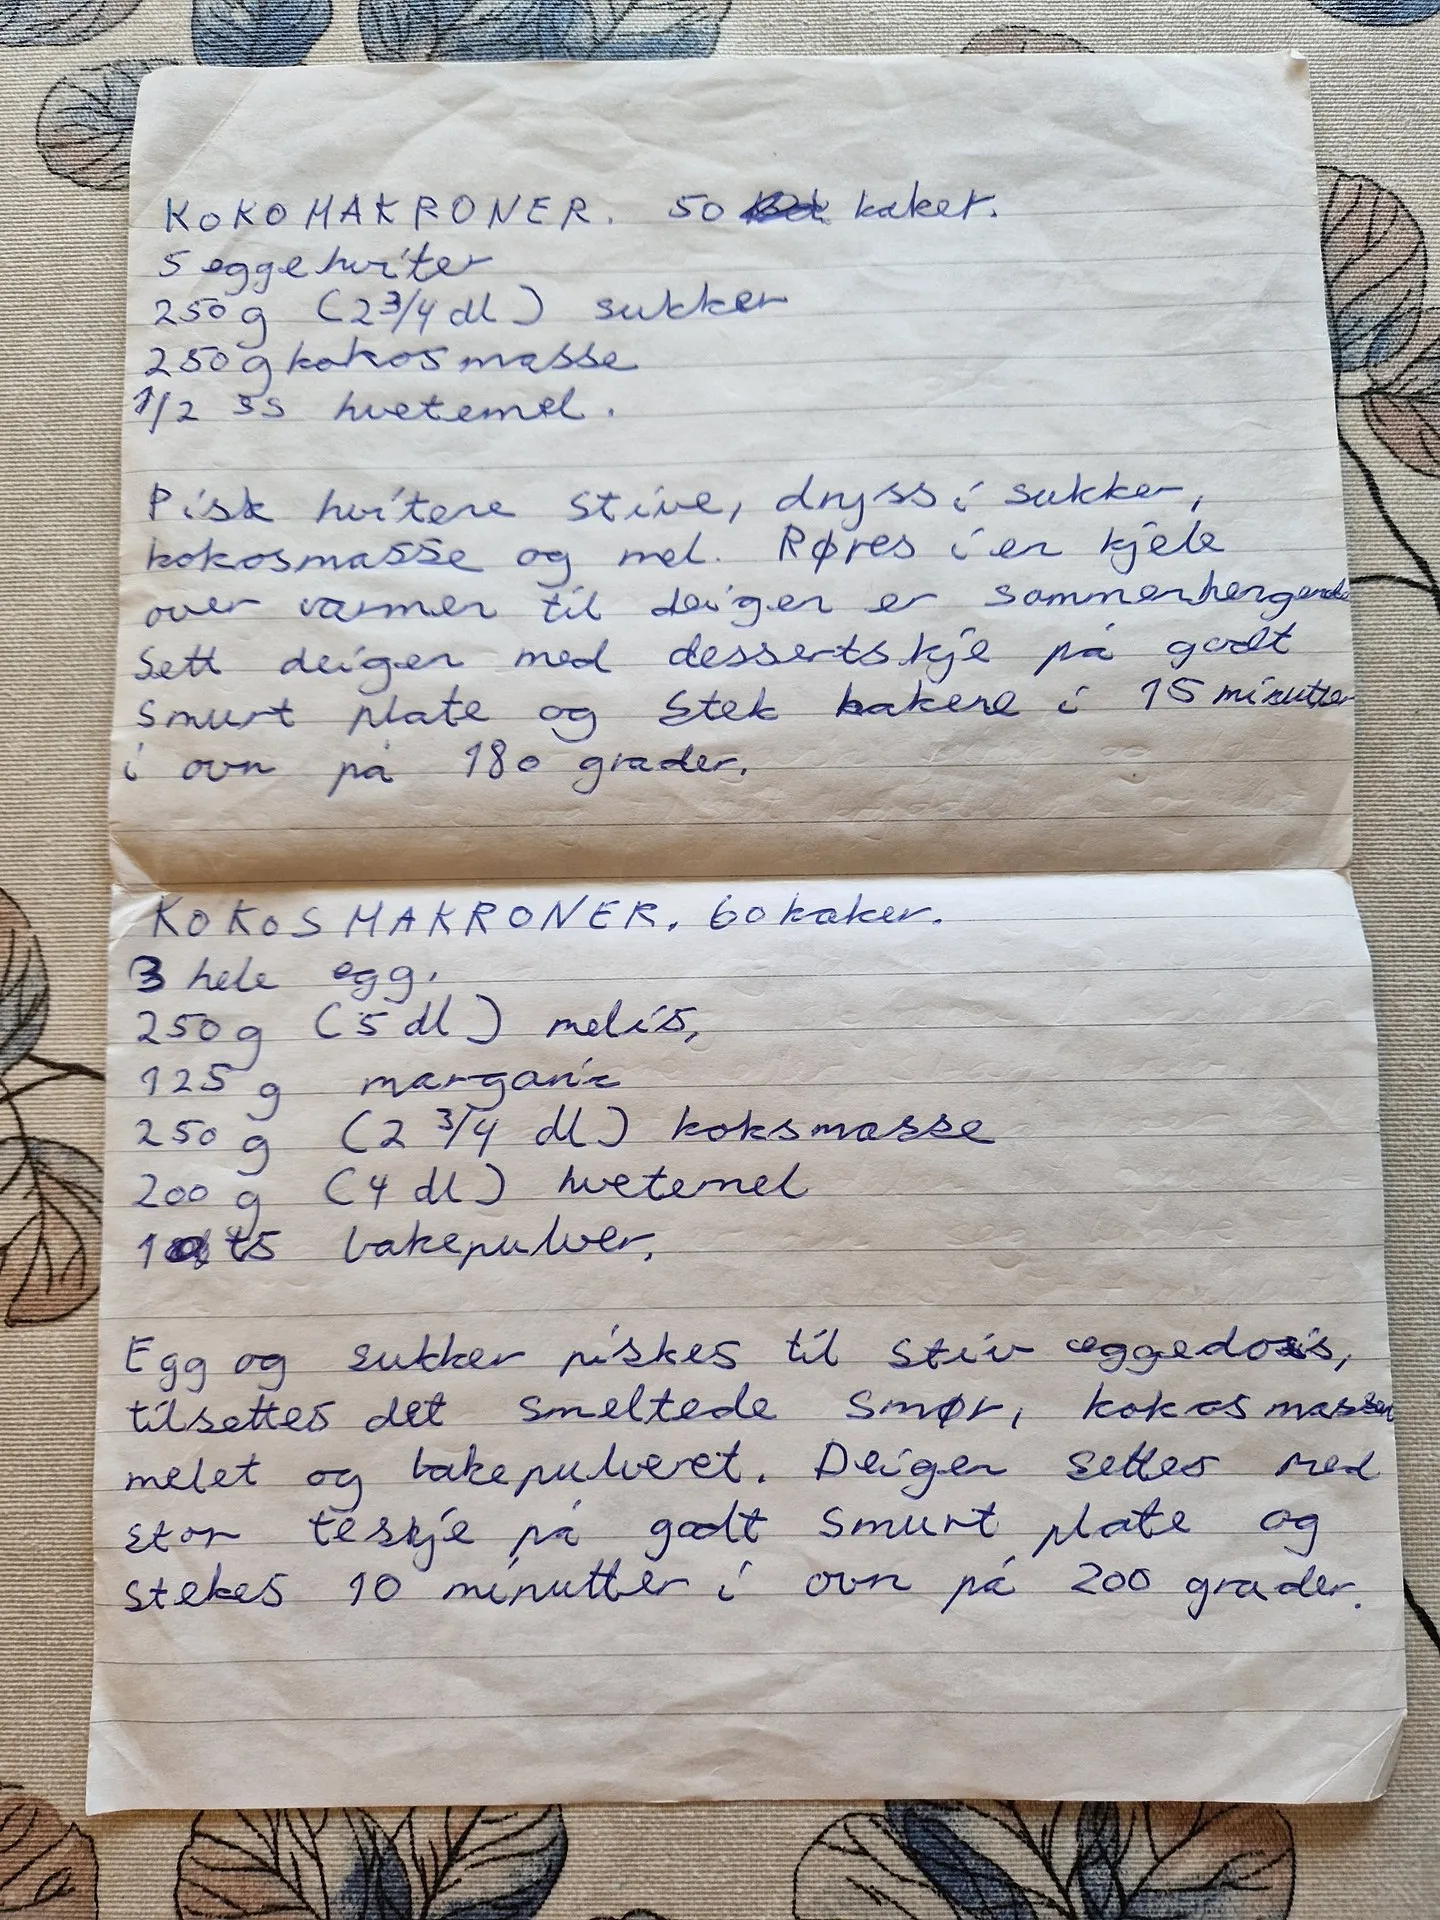 KOKOMAKRONER. 50 kaker.
5 eggehviter
250 g (2 3/4 dl) sukker
250 g kokosmasse
1/2 ss hvetemel.
Pisk hvitene stive, dryss i sukker,
kokosmasse og mel. Røres i en kjele
over varmen til deigen er sammenhengende
Sett deigen med dessertskje på godt
smurt plate og stek kakene i 15 minutter
i ovn på 180 grader.
KOKOSMAKRONER. 60 kaker.
3 hele egg.
250 g (5 dl) melis,
125 g margarin
250 g (2 3/4 dl) koksmasse
200 g (4 dl) hvetemel
1 ts bakepulver.
Egg og sukker piskes til stiv eggedosis,
tilsettes det smeltede smør, kokosmassen
melet og bakepulveret. Deigen settes med
stor teskje på godt smurt plate og
stekes 10 minutter i ovn på 200 grader.